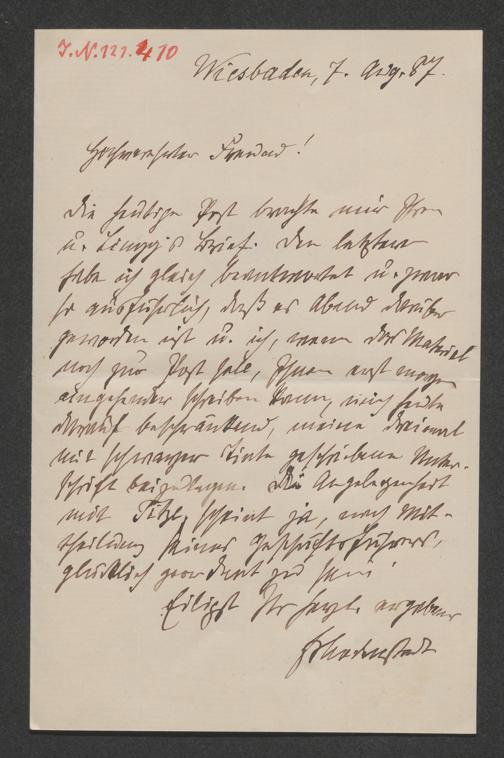 J.N. 121.410
Wiesbaden, 7. Aug. 87.
Hochverehrter Freund!
Die heutige Post brachte mir Ihren
u. Brief. Den letztern
habe ich gleich beantwortet u. zwar
so ausführlich, daß es Abend darüber
geworden ist u. ich, wenn das Material
noch zur Post soll, Ihnen erst morgen
eingehender schreiben kann, mich heute
darauf beschränkend, meine dreimal
mit schwarzer Tinte geschriebene Unter-
schrift beizulegen. Die Angelegenheit
mit scheint ja, nach Mit-
theilung seines Geschäftsführers,
glücklich geordnet zu sein.
Eiligst Ihr herzl. ergebener
FBodenstedt